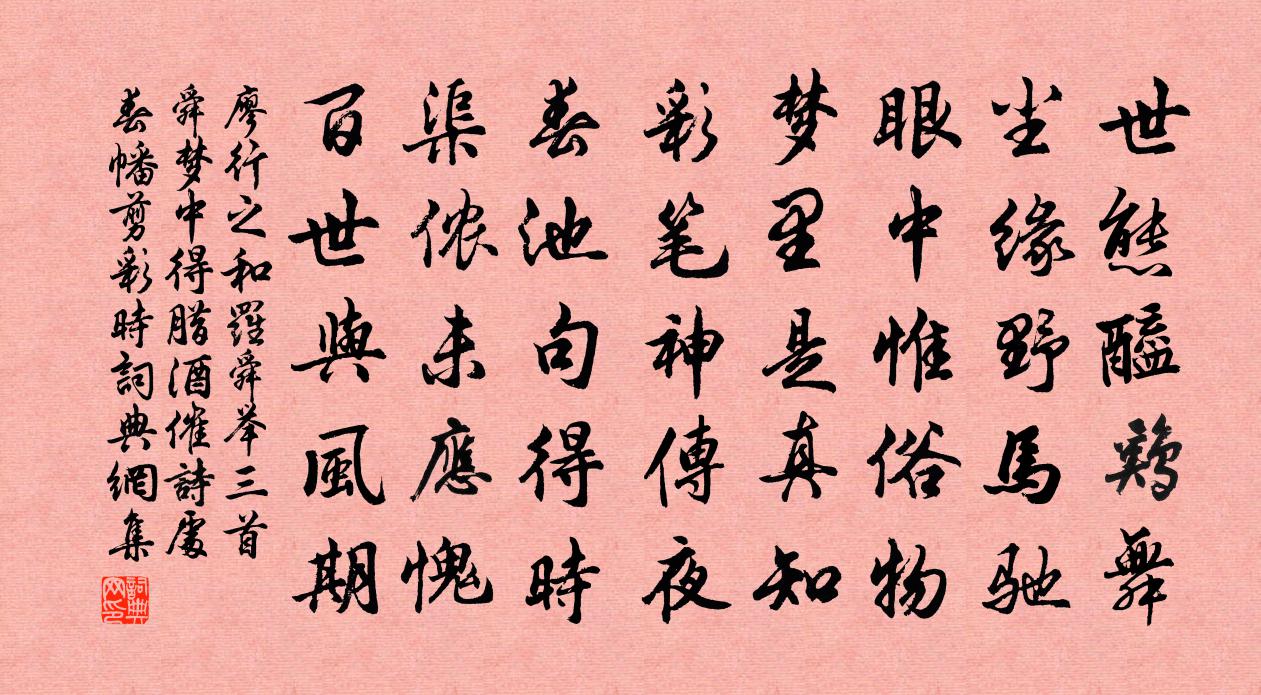 世態醯鷄舞
尘緣野馬驰
眼中惟俗物
梦里是真知
彩笔神傳夜
春池句得時
渠侬未應愧
百世與風期
廖行之和羅舜举三首
舜梦中得腊酒催詩處
春幡剪彩時詞典網集